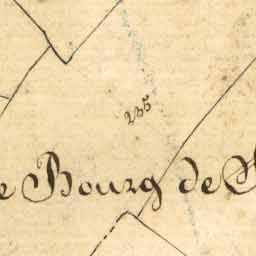 235
e Bourg de S